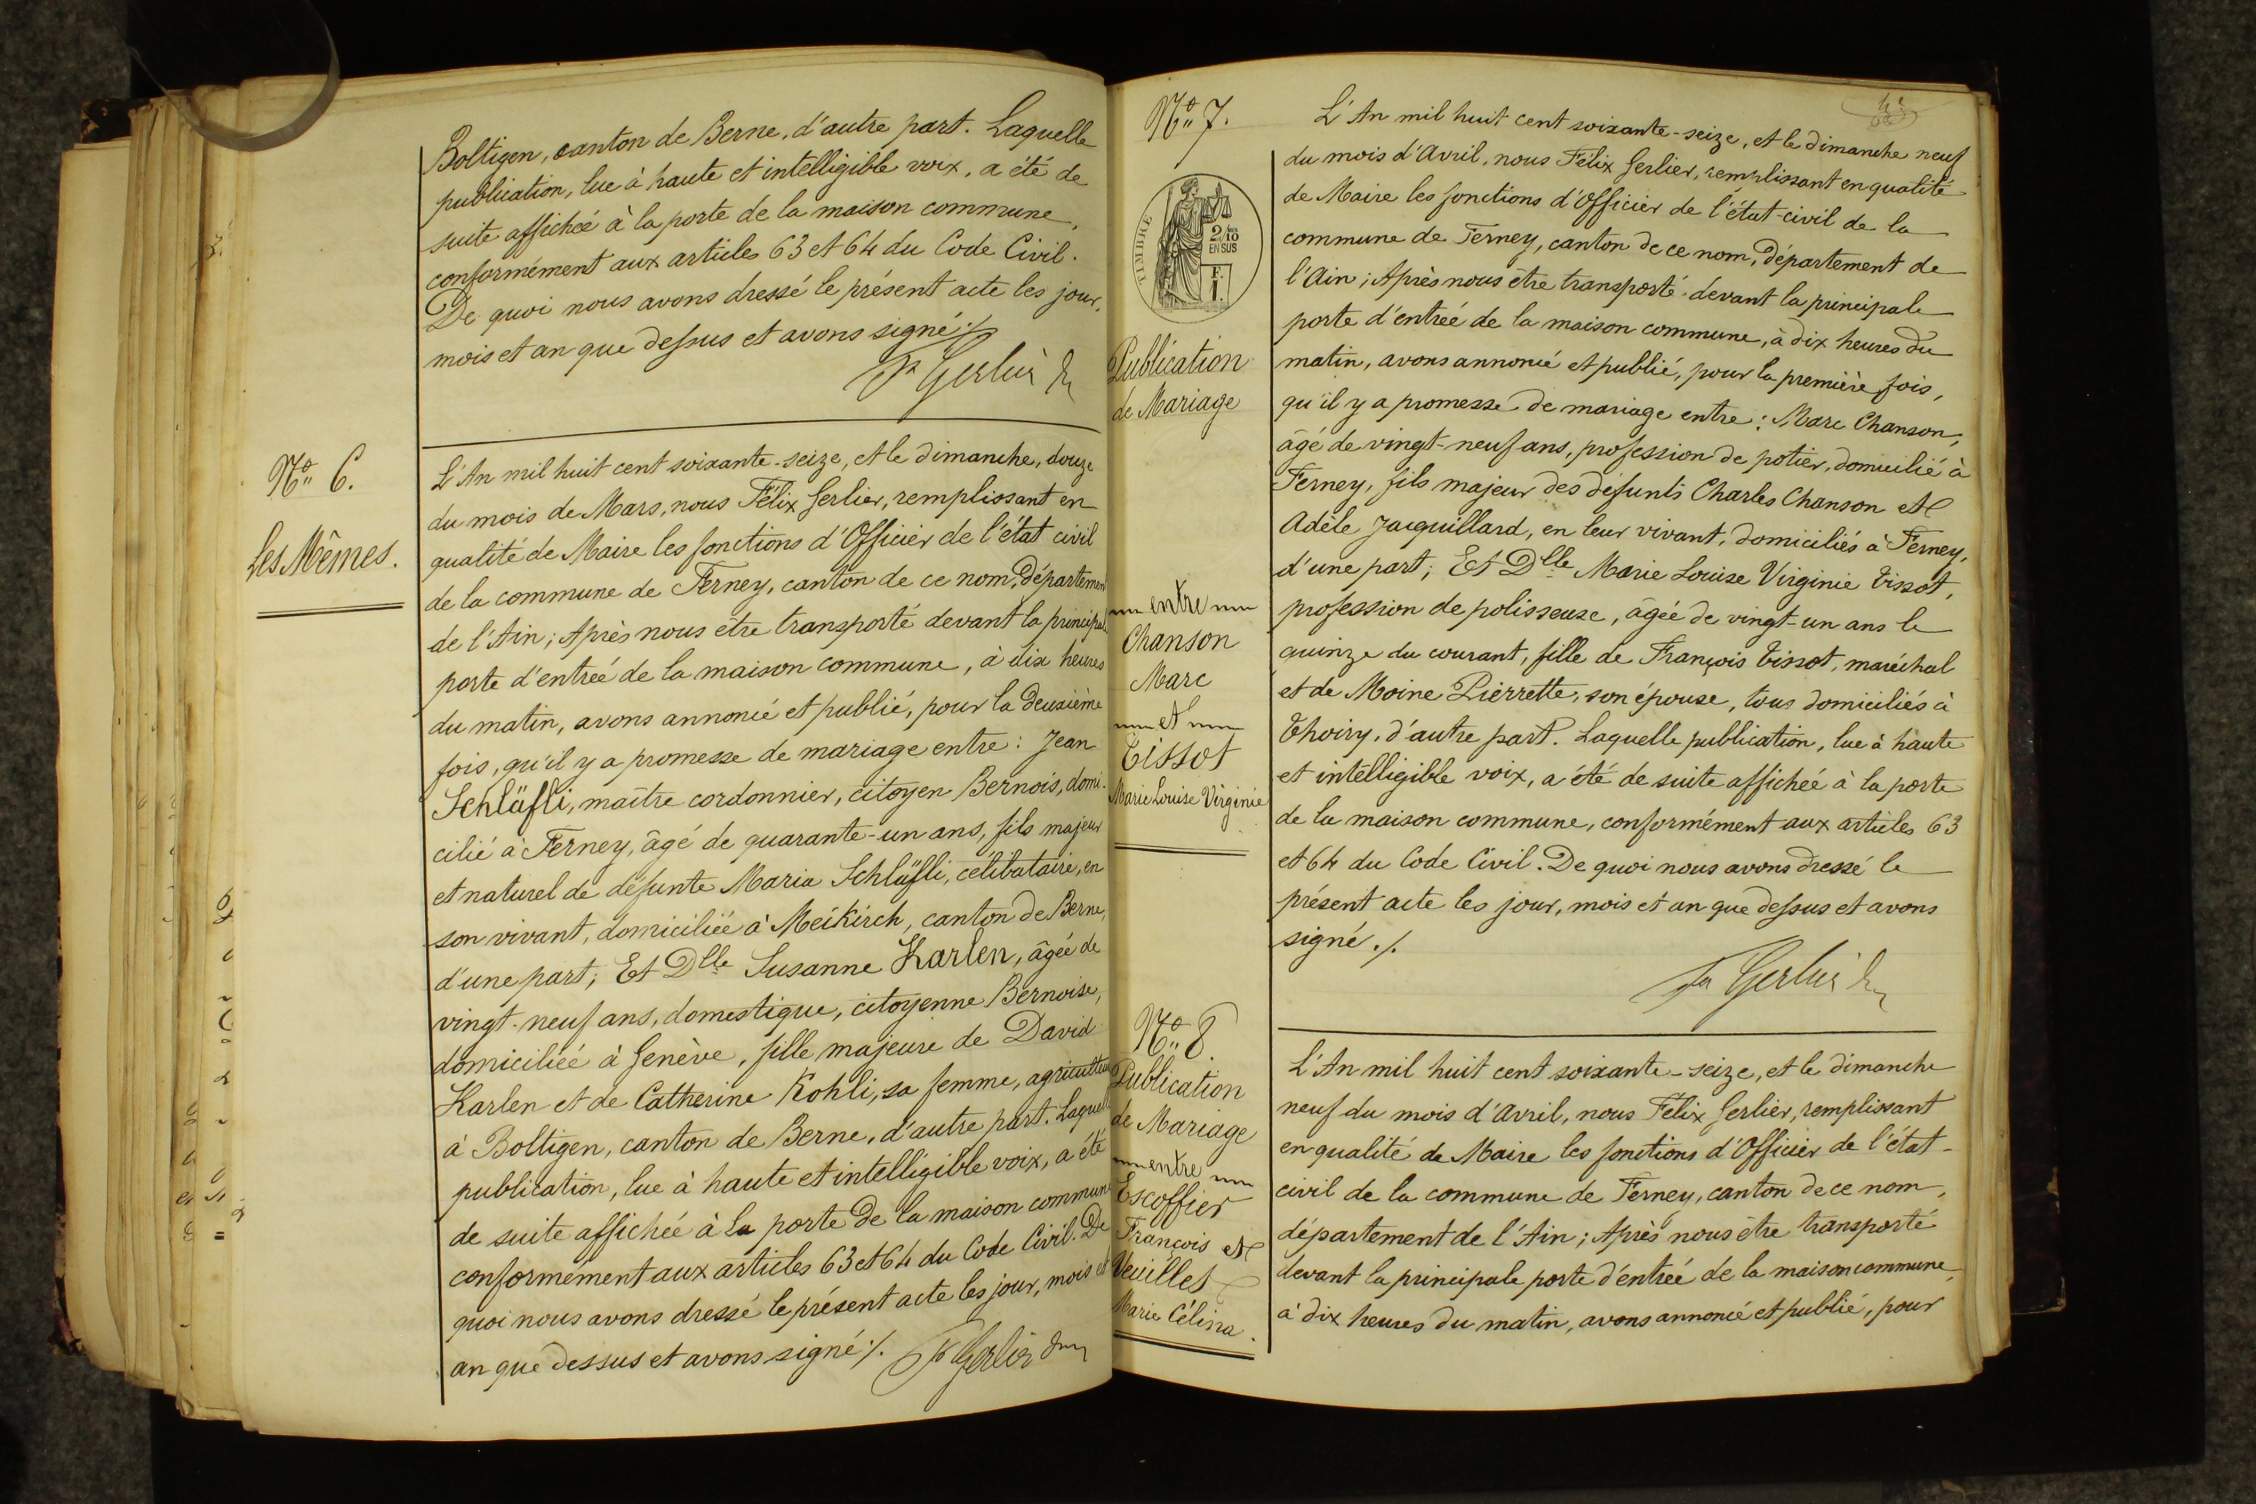 Boltigen, canton de Berne, d'autre part. Laquelle
publication, lue à haute et intelligible voix, a été de
suite affichée à la porte de la maison commune,
conformément aux articles 63 et 64 du Code Civil.
De quoi nous avons dressé le présent acte les jour,
mois et an que dessus et avons signé ./.
Fx Gerlier
No 6.
Les Mêmes.
L'An mil huit cent soixante-seize, et le dimanche, douze
du mois de Mars, nous Félix Gerlier, remplissant en
qualité de Maire les fonctions d'Officier de l'état civil
de la commune de Ferney, canton de ce nom, département
de l'Ain; Après nous être transporté devant la principale
porte d'entrée de la maison commune, à dix heures
du matin, avons annoncé et publié, pour la deuxième
fois, qu'il y a promesse de mariage entre: Jean
Schläfli, maître cordonnier, citoyen Bernois, domi-
cilié à Ferney, âgé de quarante-un ans, fils majeur
et naturel de défunte Maria Schläfli, célibataire, en
son vivant, domiciliée à Meikirch, canton de Berne,
d'une part; Et Dlle Susanne Karlen, âgée de
vingt-neuf ans, domestique, citoyenne Bernoise,
domiciliée à Genève, fille majeure de David
Karlen et de Catherine Kohli, sa femme, agriculteurs
à Boltigen, canton de Berne, d'autre part. Laquelle
publication, lue à haute et intelligible voix, a été
de suite affichée à la porte de la maison commune
conformément aux articles 63 et 64 du Code Civil. De
quoi nous avons dressé le présent acte les jour, mois et
an que dessus et avons signé ./. Fx Gerlier
No 7.
TIMBRE
2/10
EN SUS
F.
1.
Publication
de Mariage
entre
Chanson
Marc
et
Tissot
Marie Louise Virginie
L'An mil huit cent soixante-seize, et le dimanche neuf
du mois d'Avril, nous Félix Gerlier, remplissant en qualité
de Maire les fonctions d'Officier de l'état-civil de la
commune de Ferney, canton de ce nom, département de
l'Ain; Après nous être transporté devant la principale
porte d'entrée de la maison commune, à dix heures du
matin, avons annoncé et publié, pour la première fois,
qu'il y a promesse de mariage entre: Marc Chanson,
âgé de vingt-neuf ans, profession de potier, domicilié à
Ferney, fils majeur des défunts Charles Chanson et
Adèle Jacquillard, en leur vivant, domiciliés à Ferney,
d'une part; Et Dlle Marie Louise Virginie Tissot,
profession de polisseuse, âgée de vingt-un ans le
quinze du courant, fille de François Tissot, maréchal
et de Moine Pierrette, son épouse, tous domiciliés à
Thoiry, d'autre part. Laquelle publication, lue à haute
et intelligible voix, a été de suite affichée à la porte
de la maison commune, conformément aux articles 63
et 64 du Code Civil. De quoi nous avons dressé le
présent acte les jour, mois et an que dessus et avons
signé ./.
Fx Gerlier
No 8.
Publication
de Mariage
entre
Escoffier
François et
Veuillet
Marie Célina.
L'An mil huit cent soixante-seize, et le dimanche
neuf du mois d'Avril, nous Félix Gerlier, remplissant
en qualité de Maire les fonctions d'Officier de l'état-
civil de la commune de Ferney, canton de ce nom,
département de l'Ain; Après nous être transporté
devant la principale porte d'entrée de la maison commune,
à dix heures du matin, avons annoncé et publié, pour